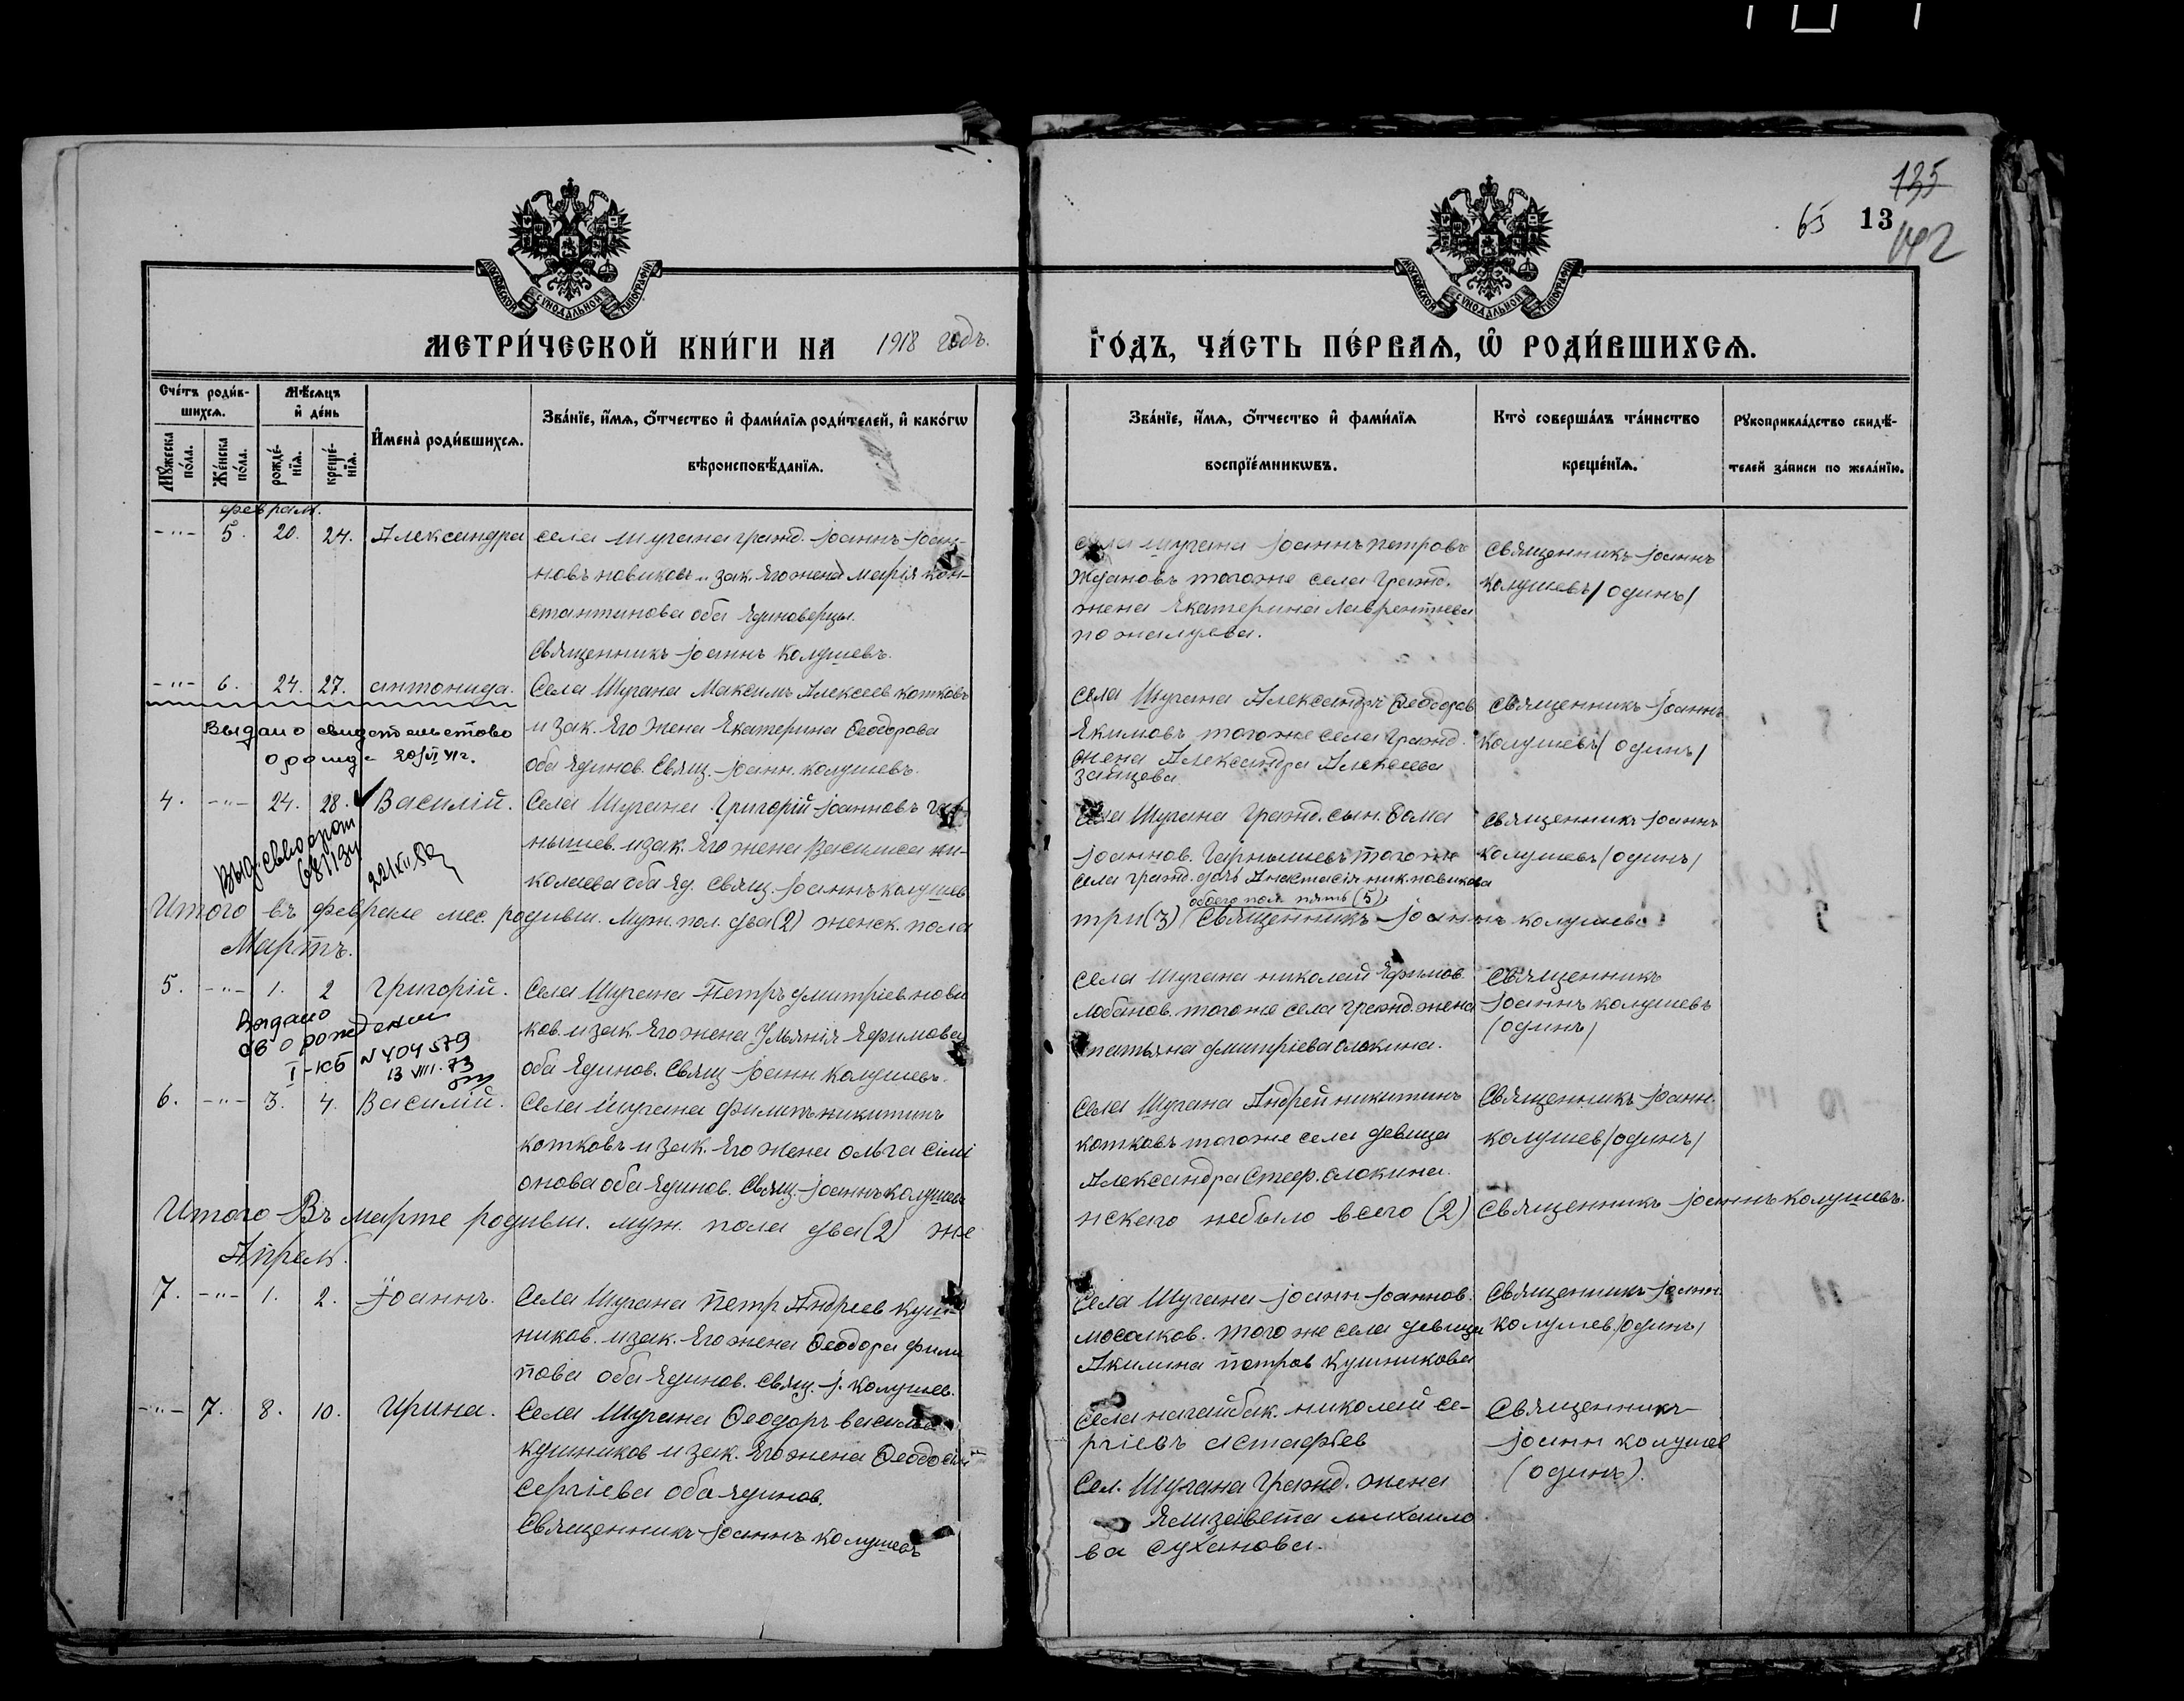 135
65 13
142
МОСКОВСКОЙ СѴНОДАЛЬНОЙ ТИПОГРАФІИ
МОСКОВСКОЙ СѴНОДАЛЬНОЙ ТИПОГРАФІИ
МЕТРИ́ЧЕСКОЙ КНИ́ГИ НА 1918 годъ.
ГО́ДЪ, ЧА́СТЬ ПЕ́РВАѦ, Ѽ РОДИ́ВШИХСѦ.
Сче́тъ роди́в-
шихсѧ.
Мꙋ́жеска по́ла.
Же́нска по́ла.
Мѣ́сѧцъ и҆ де́нь
рожде́-
нїѧ.
креще́-
нїѧ.
И҆мена̀ роди́вшихсѧ.
Зва́нїе, и҆́мѧ, ѻ҆́тчество и҆ фами́лїѧ роди́телей, и҆ како́гѡ
вѣроисповѣ́данїѧ.
Зва́нїе, и҆́мѧ, ѻ҆́тчество и҆ фами́лїѧ
воспрїе́мникѡвъ.
Кто̀ соверша́лъ та́инство
креще́нїѧ.
Рꙋкоприкла́дство свидѣ́-
телей за́писи по жела́нїю.
Февраль.
-"- 5. 20. 24. Александра
села Шугана гражд. Іоаннъ Іоан-
новъ новиковъ и зак. Его жена Марія кон-
стантинова оба Единоверцы.
Священникъ Іоаннъ Колушевъ.
села Шугана Іоаннъ петровъ
Ждановъ того же села гражд.
жена Екатерина Лаврентиева
пожалуева.
Священникъ Іоаннъ
Колушевъ/одинъ/
-"- 6. 24. 27. антонида.
Села Шугана Максимъ Алексеев котковъ
и зак. Его жена Екатерина Ѳеодорова
оба Единов. Свящ. Іоанн. колушевъ.
Выдано свидетельство
о рожд-
Села Шугана Александръ Ѳеодоров
Екимовъ того же села гражд.
жена Александра Алексеева
Зайцева
Священникъ Іоаннъ
Колушевъ/одинъ/
4. -"- 24. 28. Василій.
Села Шугана Григорій Іоанновъ
нышев. и зак. Его жена Василиса ни-
колаева оба Ед. свящ. Іоаннъ колушев
22/XII
Села Шугана гражд. сын. Ѳома
Іоаннов. Гарнышевъ того же
села гражд. дочь Анастасія ник. новикова
Священникъ Іоаннъ
Колушевъ/одинъ/
Итого въ феврале мес. родивш. Муж. пол. два (2) женск. пола
обоего пола пять (5)
три (3) Священникъ Іоаннъ колушевъ
Мартъ.
5. -"- 1. 2 Григорій.
Села Шугана Петръ Дмитріев. нови
ков. и зак Его жена Ульянія Ефимова
оба Единов. Свящ Іоанн. Колушевъ.
Выдано
св о рождении
I-КБ N 404579
13 VIII. 73
Села Шугана николай Ефимов.
Лобанов. того же села гражд. жена
татьяна Дмитріева Слокина.
Священникъ
Іоаннъ колушевъ
(одинъ)
6. -"- 3. 4. Василій.
Села Шугана Филипъ никитинъ
котковъ и зак. Его жена ольга Сімі
онова оба Единов. Свящ. Іоаннъ колушев
Села Шугана Андрей никитинъ
котковъ того же села девица
Александра Стеф. Слокина.
Священникъ Іоанн.
колушев/одинъ/
Итого Въ марте родивш. муж. пола два (2) же
нскаго небыло всего (2) Священникъ Іоаннъ колушевъ.
Апрель.
7. -"- 1. 2. Іоаннъ.
Села Шугана Петр Андреев Куш
ников. и зак. Его жена Ѳеодора фили
пова оба Единов. Свящ. І. Колушев.
Села Шугана Іоанн Іоаннов.
мосолков. того же села девица
Акилина петров Кушникова
Священникъ Іоанн.
Колушев/одинъ/
-"- 7. 8. 10. Ирина.
Села Шугана Ѳеодоръ василь
кушников и зак. Его жена Ѳеодосія
Сергіева оба Единов.
Священникъ Іоаннъ Колушевъ
села нагайбак. николай се-
ргіевъ Астафьев
Сел. Шугана гражд. жена
Елизавета михаило
ва Суханова.
Священникъ
Іоанн колушев
(одинъ).